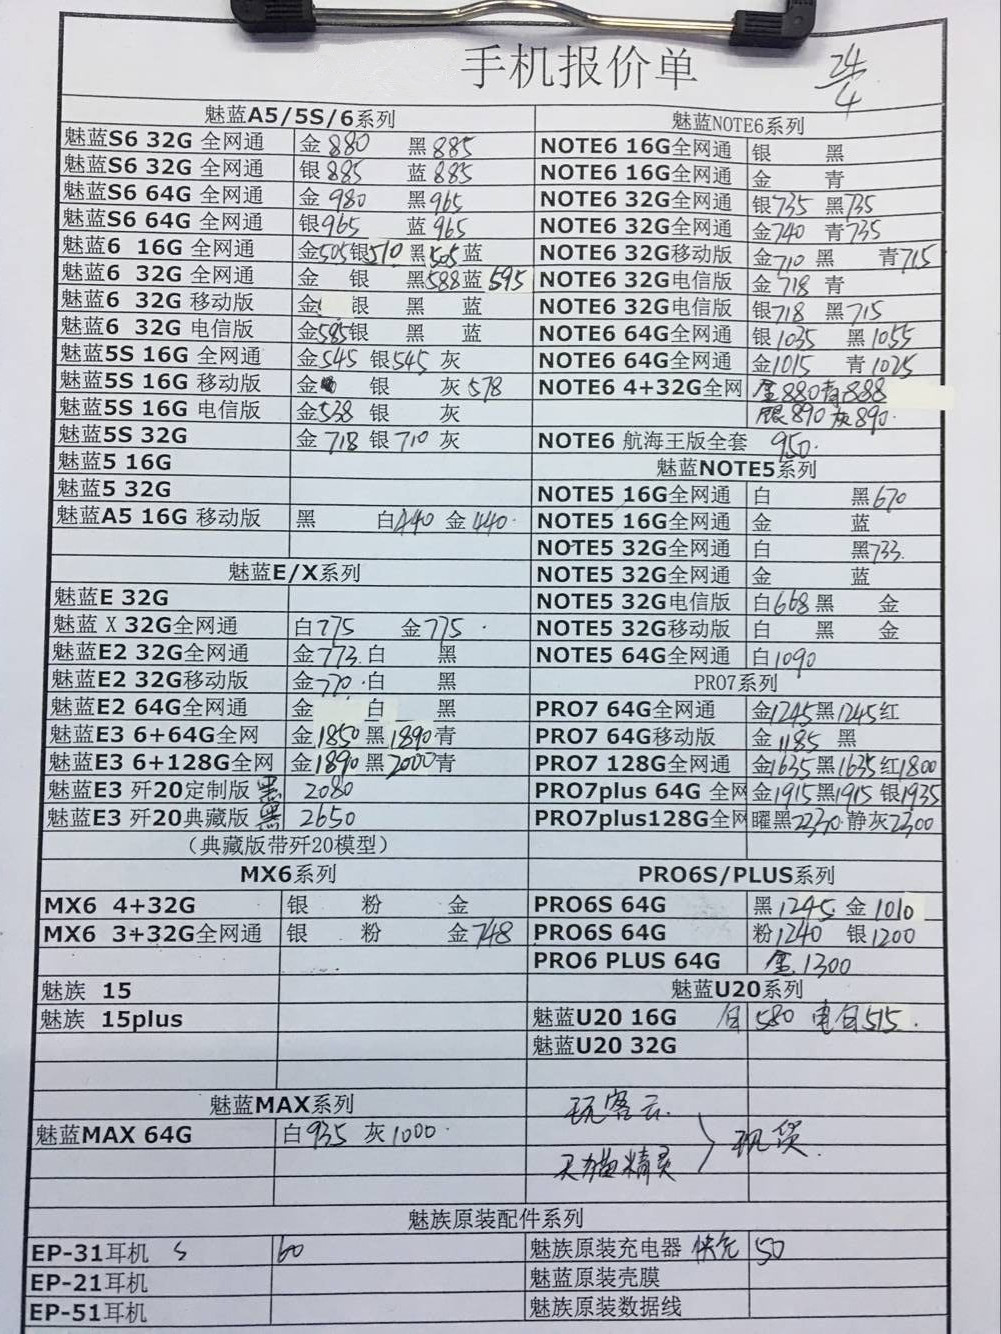 手机报价单
24/4
魅蓝A5/5S/6系列
魅蓝S6 32G 全网通 金880 黑885
魅蓝S6 32G 全网通 银885 蓝885
魅蓝S6 64G 全网通 金980 黑965
魅蓝S6 64G 全网通 银965 蓝965
魅蓝6 16G 全网通 金505银510黑505蓝
魅蓝6 32G 全网通 金 银 黑588蓝595
魅蓝6 32G 移动版 金 银 黑 蓝
魅蓝6 32G 电信版 金585银 黑 蓝
魅蓝5S 16G 全网通 金545 银545 灰
魅蓝5S 16G 移动版 金 银 灰578
魅蓝5S 16G 电信版 金538 银 灰
魅蓝5S 32G 金718 银710 灰
魅蓝5 16G
魅蓝5 32G
魅蓝A5 16G 移动版 黑 白440 金440
魅蓝E/X系列
魅蓝E 32G
魅蓝 X 32G全网通 白775 金775
魅蓝E2 32G全网通 金773 白 黑
魅蓝E2 32G移动版 金770 白 黑
魅蓝E2 64G全网通 金 白 黑
魅蓝E3 6+64G全网 金1850黑1890青
魅蓝E3 6+128G全网 金1890黑2000青
魅蓝E3 歼20定制版 黑 2080
魅蓝E3 歼20典藏版 黑 2650
（典藏版带歼20模型）
MX6系列
MX6 4+32G 银 粉 金
MX6 3+32G全网通 银 粉 金748
魅族 15
魅族 15plus
魅蓝MAX系列
魅蓝MAX 64G 白935 灰1000
魅蓝NOTE6系列
NOTE6 16G全网通 银 黑
NOTE6 16G全网通 金 青
NOTE6 32G全网通 银735 黑735
NOTE6 32G全网通 金740 青735
NOTE6 32G移动版 金710 黑 青715
NOTE6 32G电信版 金718 青
NOTE6 32G电信版 银718 黑715
NOTE6 64G全网通 银1035 黑1055
NOTE6 64G全网通 金1015 青1025
NOTE6 4+32G全网 金880青888
银890灰890
NOTE6 航海王版全套 950
魅蓝NOTE5系列
NOTE5 16G全网通 白 黑670
NOTE5 16G全网通 金 蓝
NOTE5 32G全网通 白 黑733
NOTE5 32G全网通 金 蓝
NOTE5 32G电信版 白668黑 金
NOTE5 32G移动版 白 黑 金
NOTE5 64G全网通 白1090
PRO7系列
PRO7 64G全网通 金1245黑1245红
PRO7 64G移动版 金1185 黑
PRO7 128G全网通 金1635黑1635红1800
PRO7plus 64G 全网 金1915黑1915 银1935
PRO7plus128G全网 曜黑2330 静灰2300
PRO6S/PLUS系列
PRO6S 64G 黑1245 金1010
PRO6S 64G 粉1240 银1200
PRO6 PLUS 64G 金1300
魅蓝U20系列
魅蓝U20 16G 白580 电白515
魅蓝U20 32G
玩客云
天猫精灵
现货
魅族原装配件系列
EP-31耳机 S 60
EP-21耳机
EP-51耳机
魅族原装充电器 快充 50
魅蓝原装壳膜
魅族原装数据线